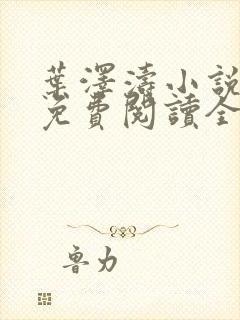 葉澤濤小說
免費閱讀全
魯力